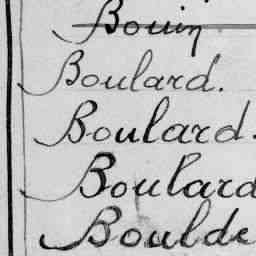 Bouin
Boulard.
Boulard.
Boulard
Boulde